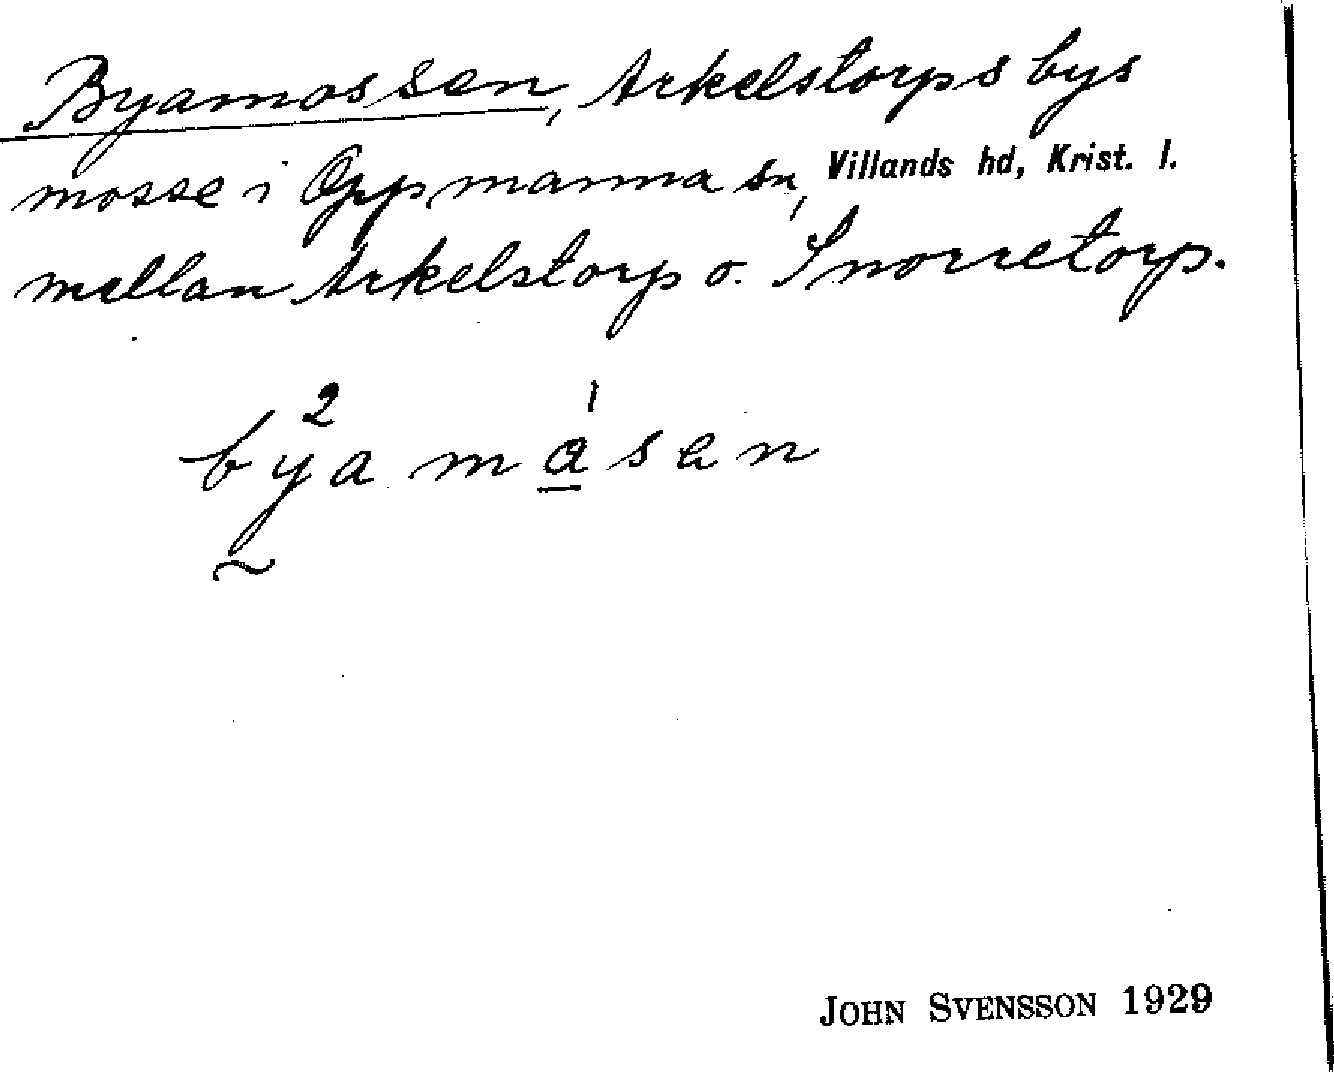 Byamossen, Arkelstorps bys
mosse i Oppmanna sn, Villands hd, Krist. l.
mellan Arkelstorp o. Snorretorp.
2 1
byamåsen
JOHN SVENSSON 1929